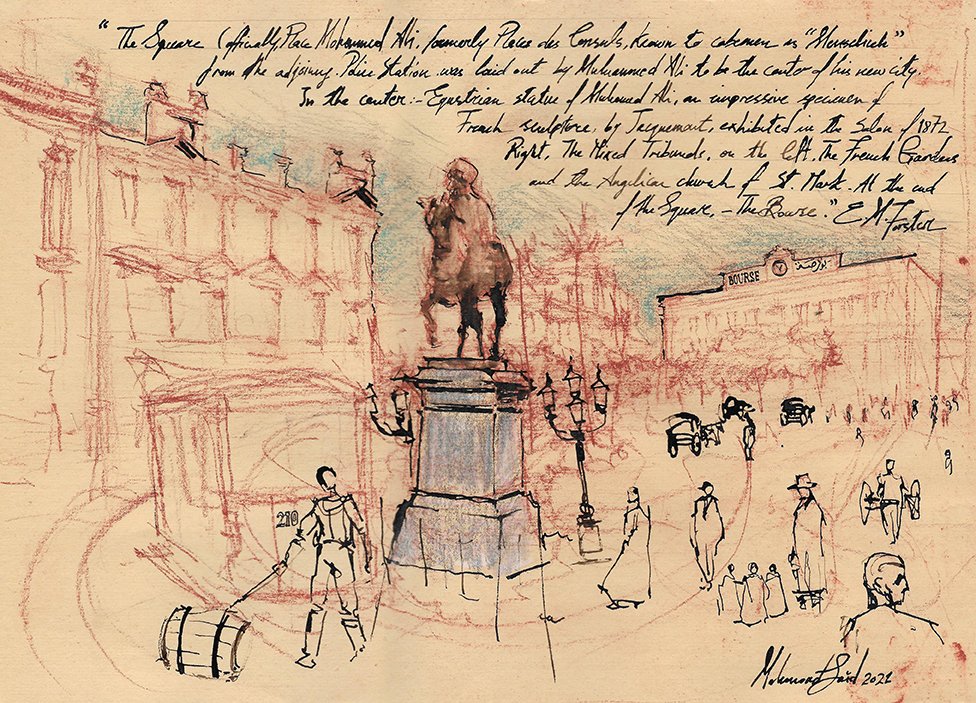 "The Square (officially, Place Mohammed Ali, formerly Place des Consuls, known to cabmen as "Menschieh"
from the adjoining Police Station was laid out by Muhammed Ali to be the center of his new city.
In the center:- Equstrian statue of Muhamed Ali, an impressive specimen of
French sculpture, by Jacquemart, exhibited in the Salon of 1872
Right, The Mixed Tribunals, on the left, The French Gardens
and the Anglican church of St. Mark. At the end
of the Square, - The Bourse." E.M.
Forster
BOURSE بورصة
210
Mohamed Said 2021